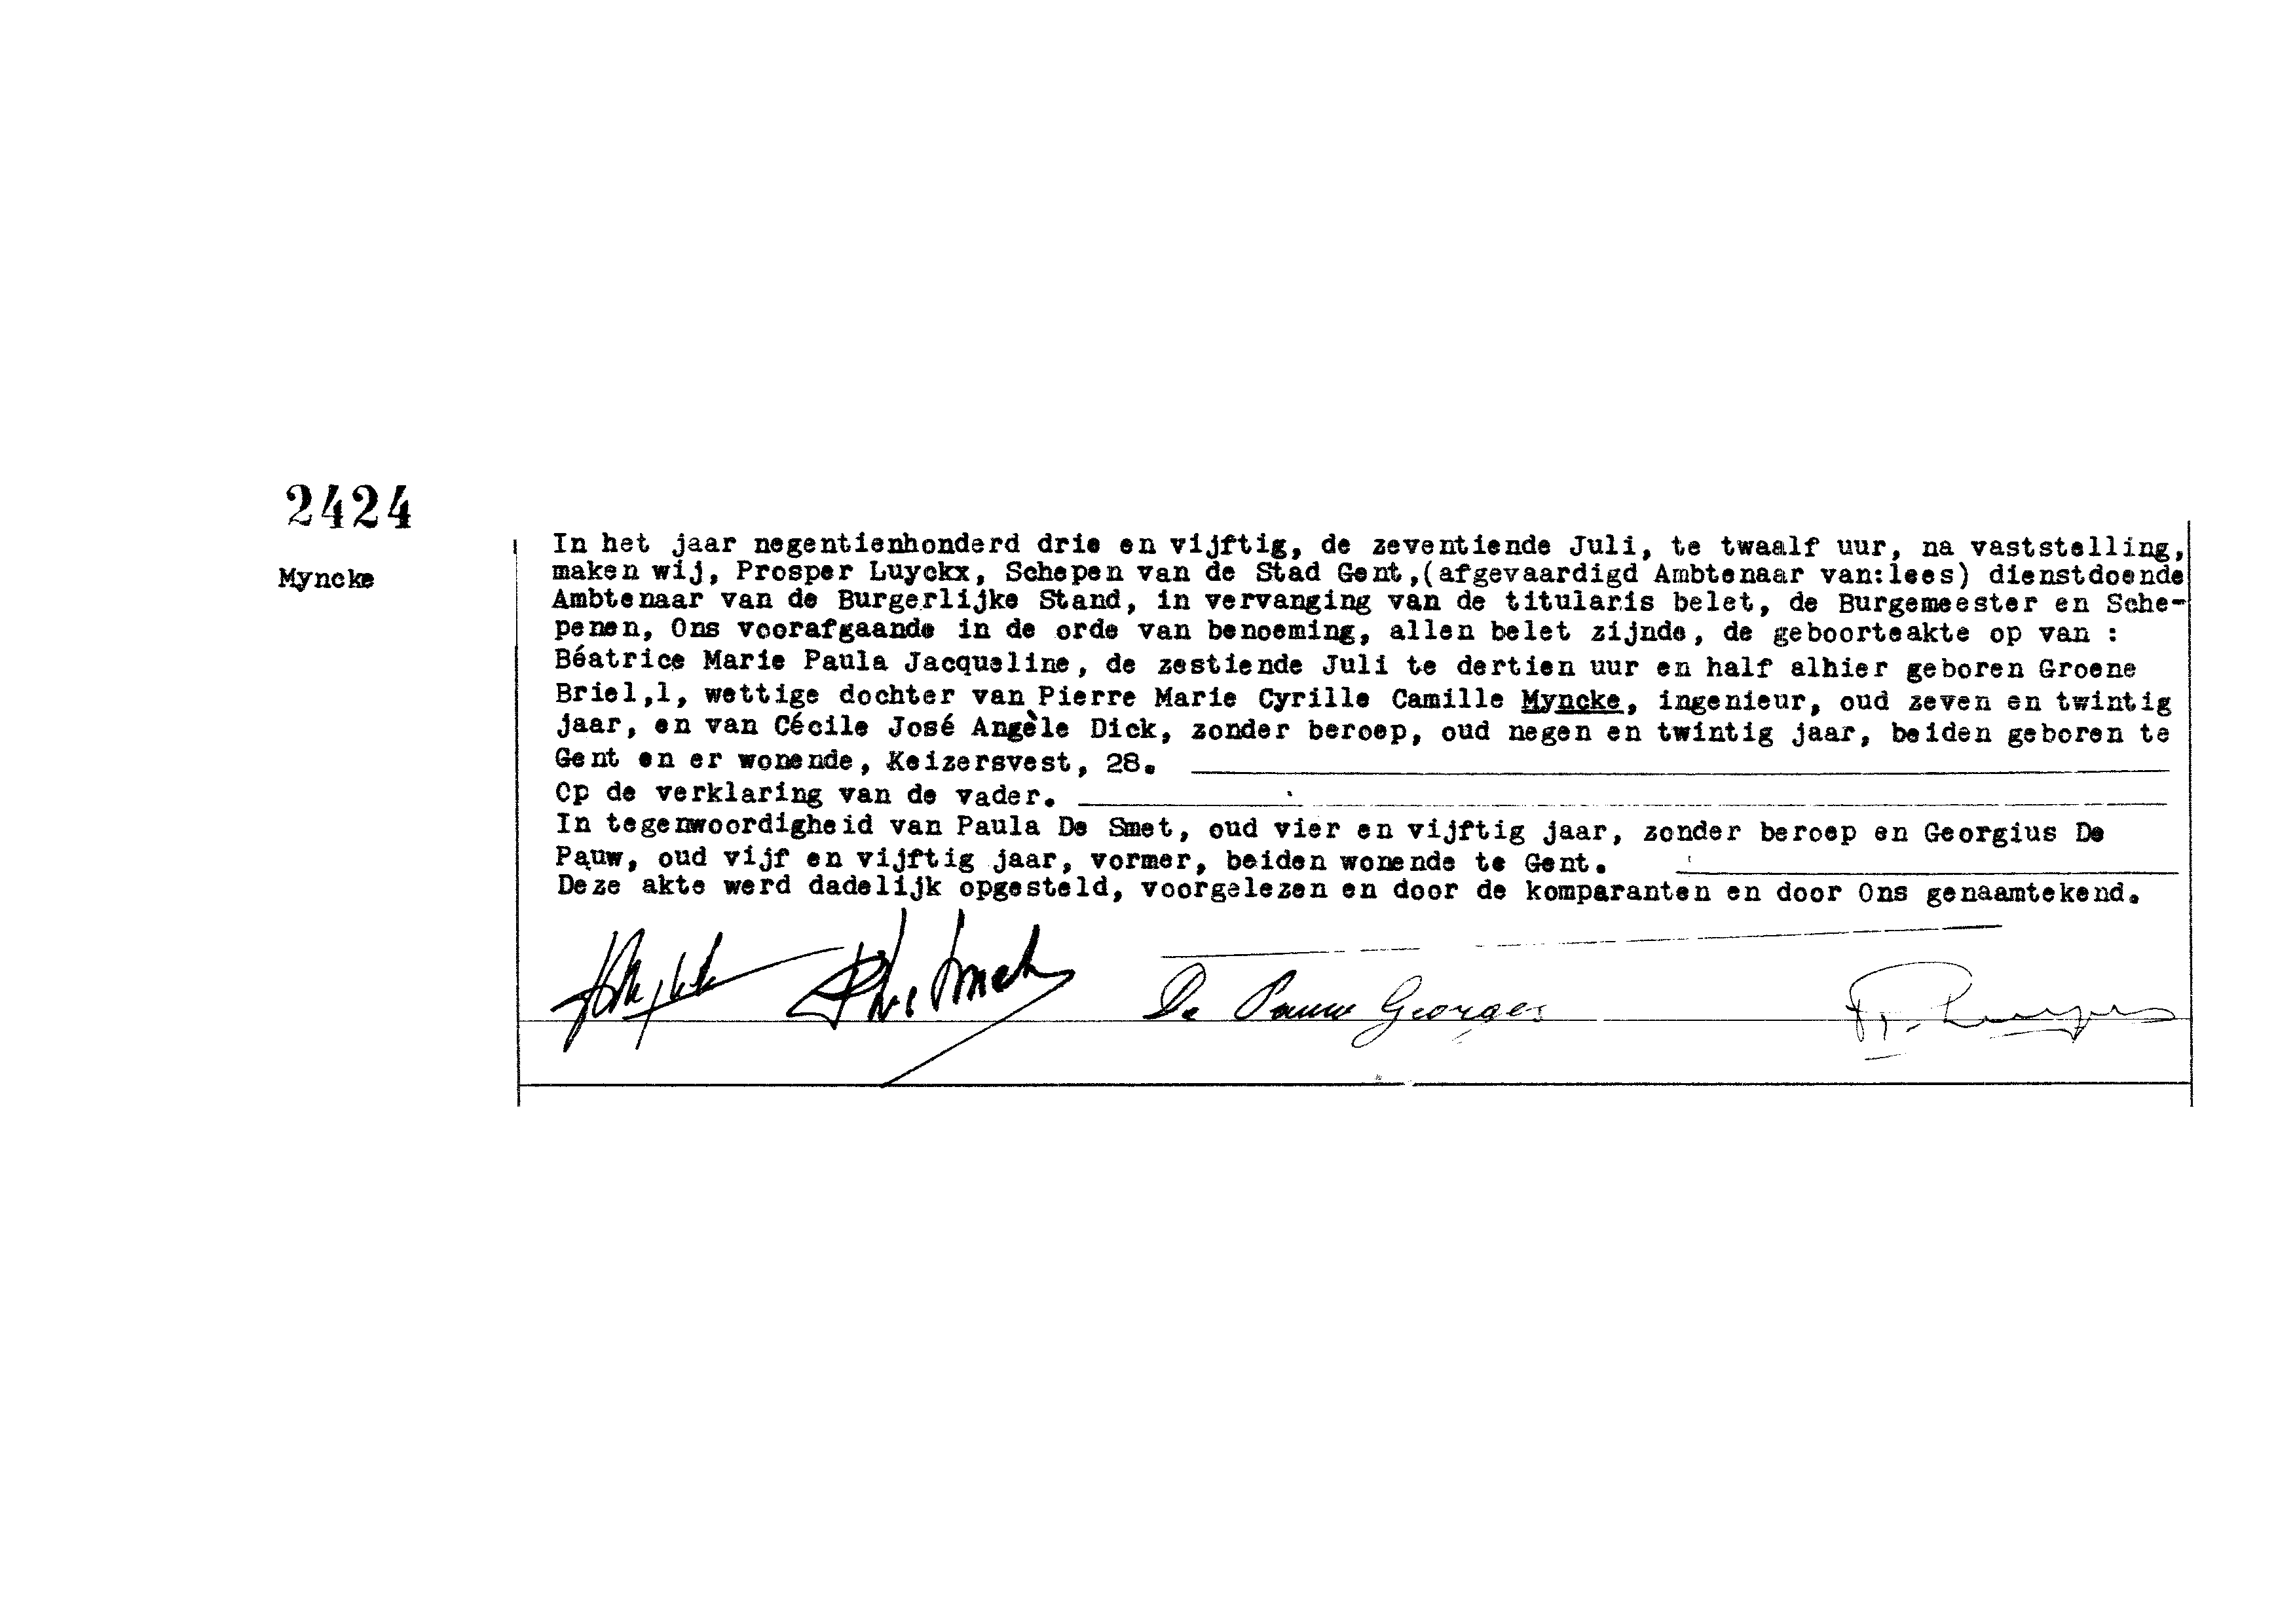 2424
Myncke
In het jaar negentienhonderd drie en vijftig, de zeventiende Juli, te twaalf uur, na vaststelling,
maken wij, Prosper Luyckx, Schepen van de Stad Gent,(afgevaardigd Ambtenaar van:lees) dienstdoende
Ambtenaar van de Burgerlijke Stand, in vervanging van de titularis belet, de Burgemeester en Sche-
penen, Ons voorafgaande in de orde van benoeming, allen belet zijnde, de geboorteakte op van :
Béatrice Marie Paula Jacqueline, de zestiende Juli te dertien uur en half alhier geboren Groene
Briel,1, wettige dochter van Pierre Marie Cyrille Camille Myncke, ingenieur, oud zeven en twintig
jaar, en van Cécile José Angèle Dick, zonder beroep, oud negen en twintig jaar, beiden geboren te
Gent en er wonende, Keizersvest, 28.
Op de verklaring van de vader.
In tegenwoordigheid van Paula De Smet, oud vier en vijftig jaar, zonder beroep en Georgius De
Pauw, oud vijf en vijftig jaar, vormer, beiden wonende te Gent.
Deze akte werd dadelijk opgesteld, voorgelezen en door de komparanten en door Ons genaamtekend.
De Pauw Georges